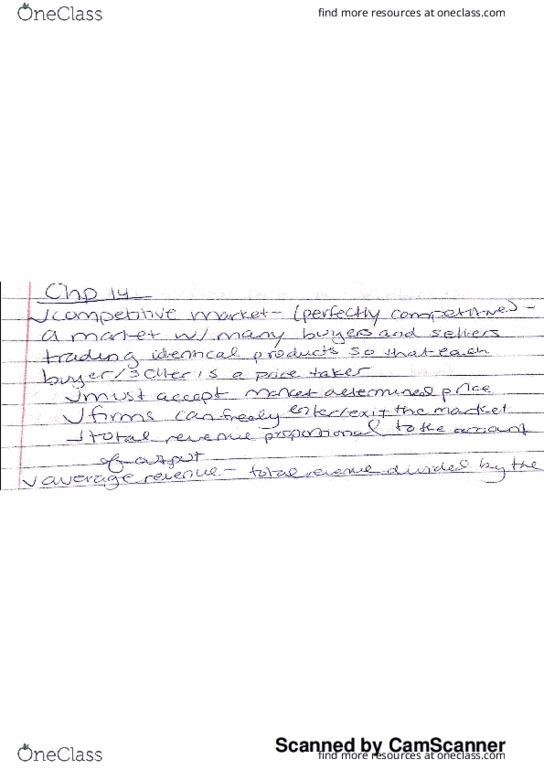 OneClass
find more resources at oneclass.com
Chp 14
√competitive market- (perfectly competitive) -
a market w/ many buyers and sellers
trading identical products so that each
buyer/seller is a price taker
√must accept market determined price
√firms can freely enter/exit the market
√total revenue proportional to the amount
of output
√average revenue- total revenue divided by the
Scanned by CamScanner
OneClass
find more resources at oneclass.com